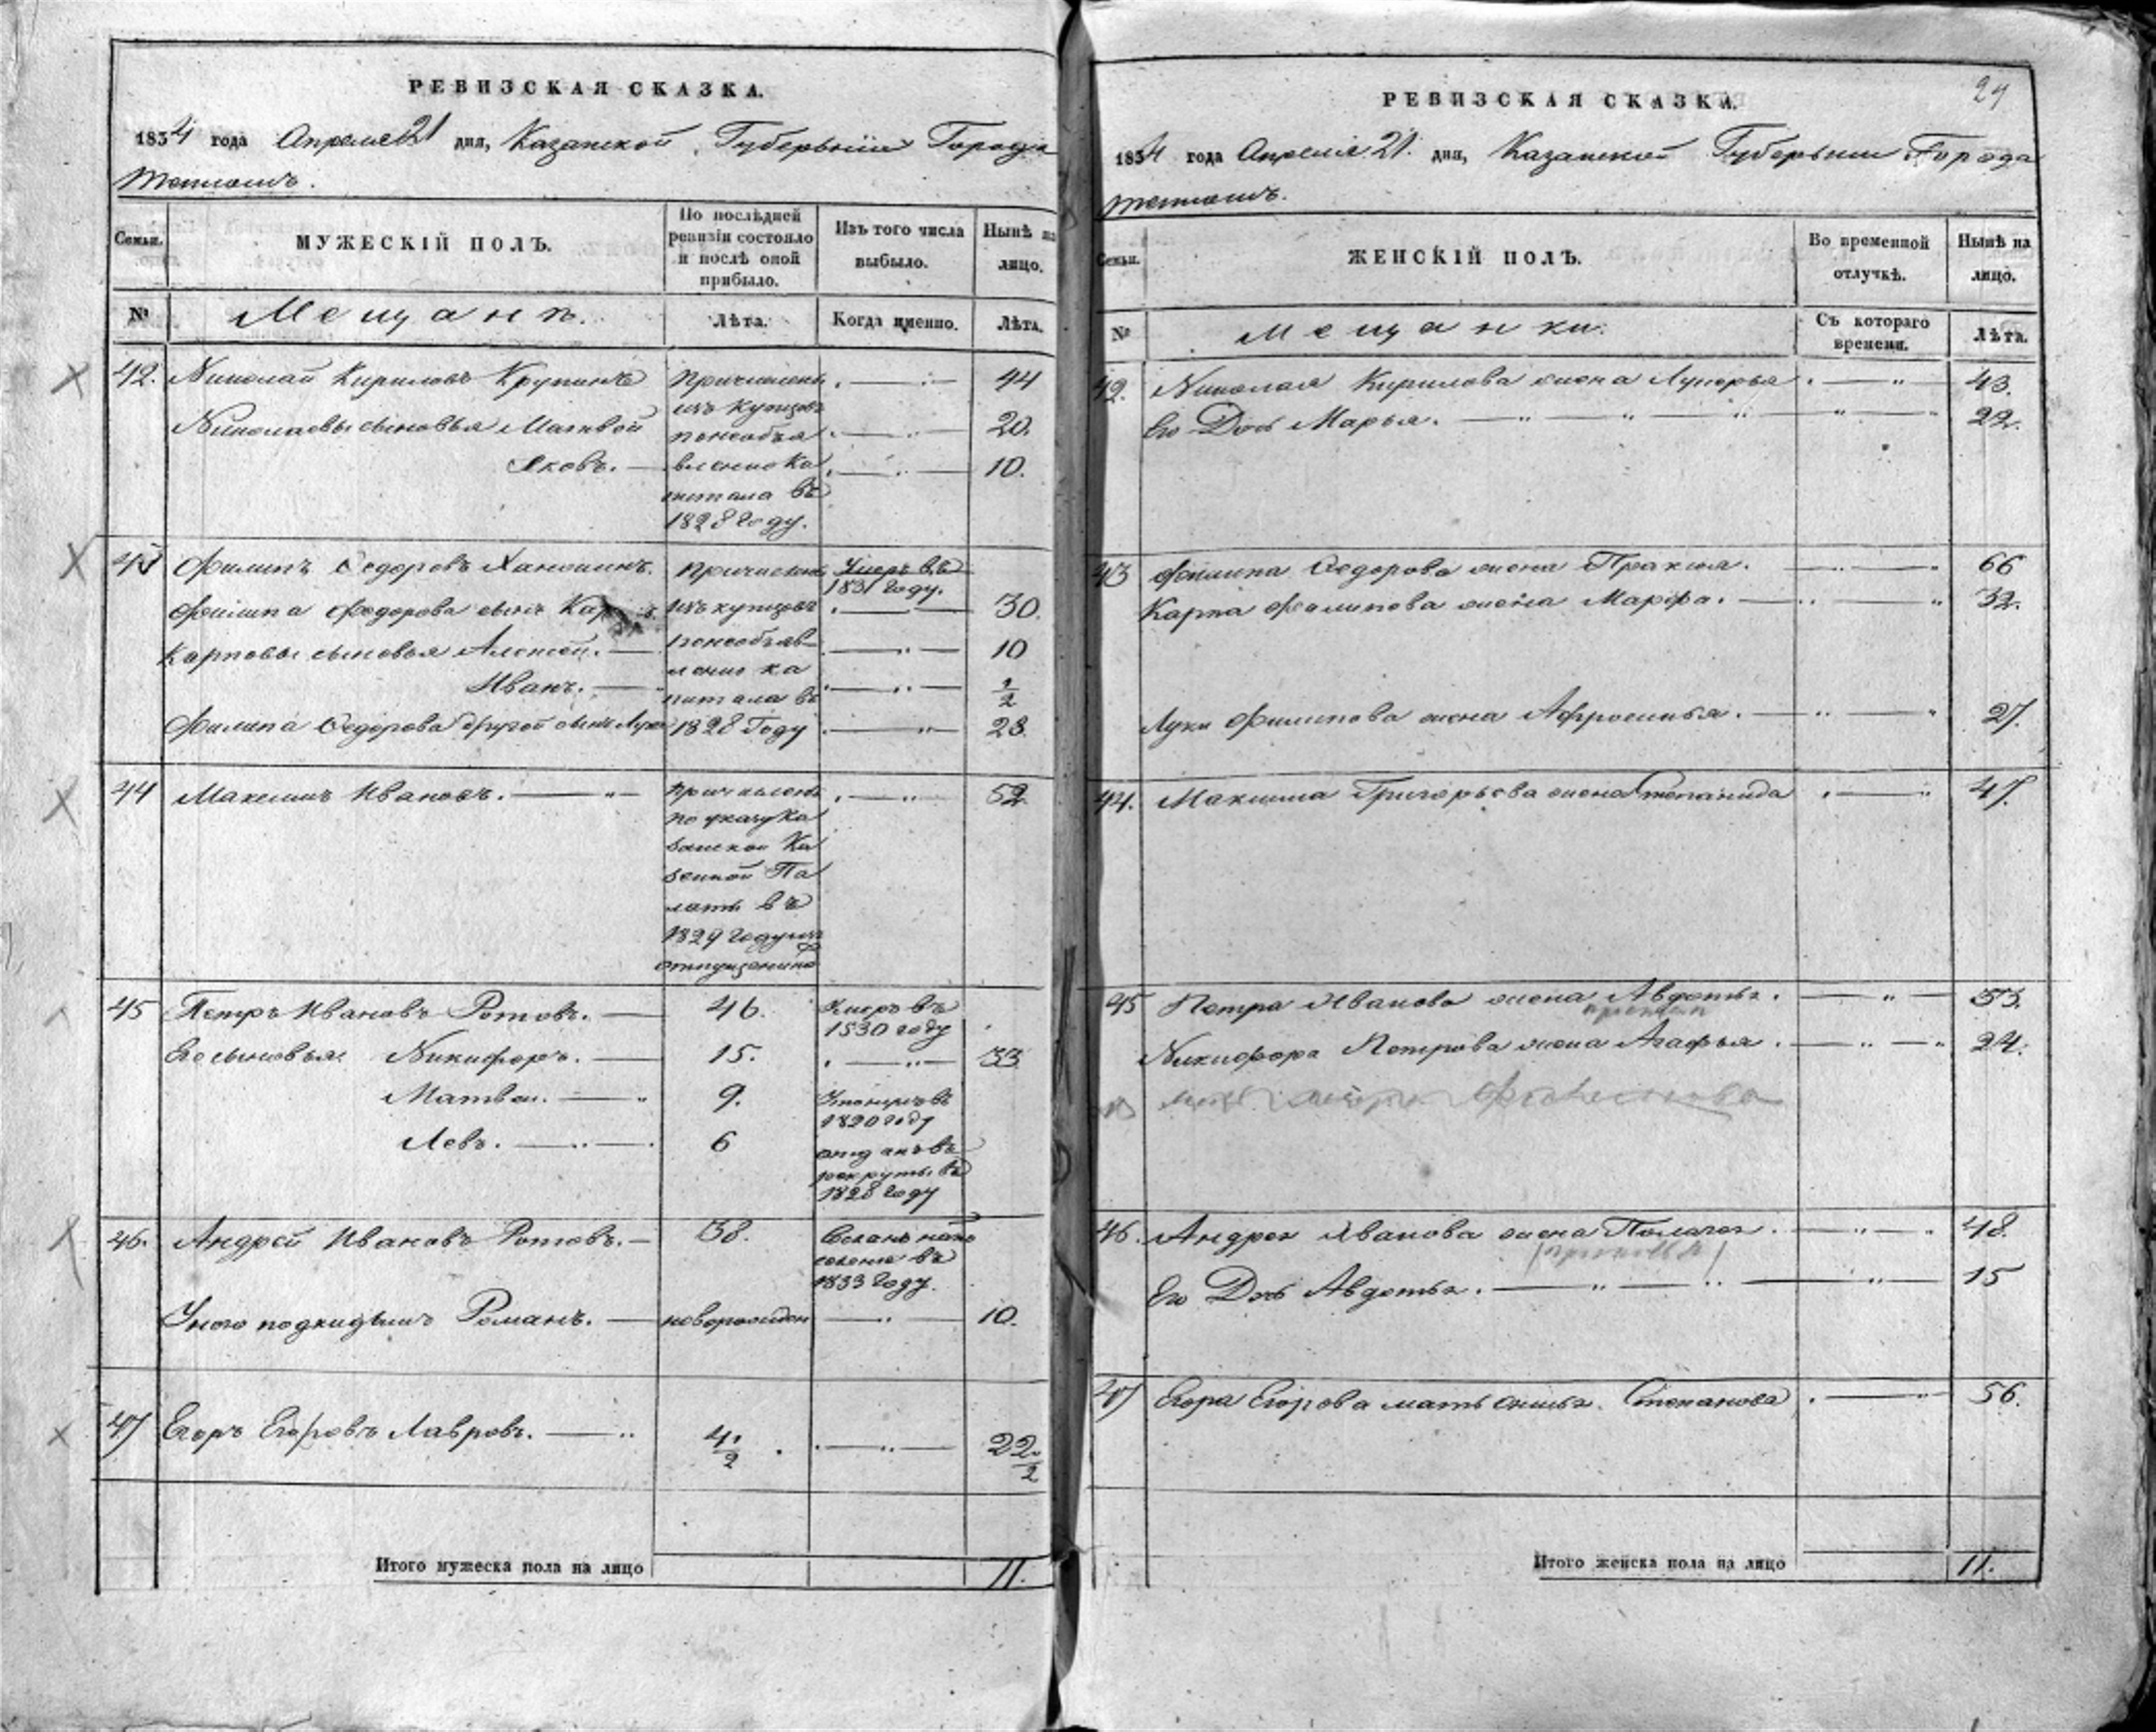 РЕВИЗСКАЯ СКАЗКА.
1834 года Апреля 21 дня, Казанской Губернии Города
Тетюшъ.
Семьи.
МУЖЕСКІЙ ПОЛЪ.
По послѣдней ревизіи состояло и послѣ оной прибыло.
Изъ того числа выбыло.
Нынѣ на лицо.
№
Мещанъ.
Лѣта.
Когда именно.
Лѣта.
42. Николай Кириловъ Крупинъ Причисленъ 44
изъ купцовъ
Николаевы сыновья Матвей понеобъя 20.
Яковъ. вленію ка 10.
питала въ
1828 году.
43 Филипъ Федоровъ Причисленъ Умеръ въ
1831 году.
Филипа Федорова сынъ Карпъ изъ купцовъ 30.
Карповы сыновья Алексей. понеобъяв 10
ленію ка
Иванъ. питала въ 1/2
Филипа Федорова другой сынъ Лука 1828 Году 28.
44 Максимъ Ивановъ. Причисленъ 52.
по указу Ка
занской Ка
зенной Па
латы въ
1829 году изъ
отпущенныхъ
45 Петръ Ивановъ Ротовъ. 46. Умеръ въ
1830 году
Его сыновья Никифоръ. 15. 33
Матвей. 9. въ
1820 году
Левъ. 6 отданъ въ
рекруты въ
1828 году
46. Андрей Ивановъ Ротовъ. 38. Сосланъ на по
селеніе въ
1833 году.
У него подкидышъ Романъ. новорожден 10.
47 Егоръ Егоровъ Лавровъ. 4 1/2 22 1/2
Итого мужеска пола на лицо 11.
24
РЕВИЗСКАЯ СКАЗКА.
1834 года Апреля 21. дня, Казанской Губернии Города
Тетюшъ.
Семьи.
ЖЕНСКІЙ ПОЛЪ.
Во временной отлучкѣ.
Нынѣ на лицо.
№
Мещанки.
Съ котораго времени.
Лѣта.
42. Николая Кирилова жена Лукерья 43.
Его Дочь Марья. 22.
43 Филипа Федорова жена 66
Карпа Филипова жена Марфа. 32.
Луки Филипова жена Афросинья. 27.
44. Максима Григорьева жена Степанида 47.
45 Петра Иванова жена Авдотья. 53.
Никифора Петрова жена Агафья. 24.
46. Андрея Иванова жена 48.
Его Дочь Авдотья. 15
47 Егора Егорова мать Степанова 56.
Итого женска пола на лицо 11.